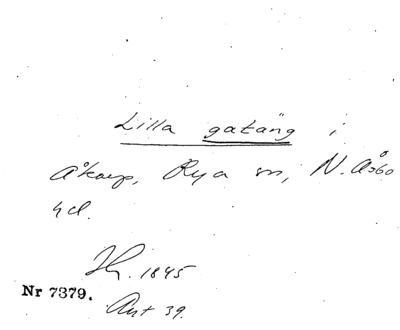 Lilla gatäng i
Åkarp, Rya sn, N. Åsbo
hd.
Jh. 1845
Nr 7379.
Akt 39.